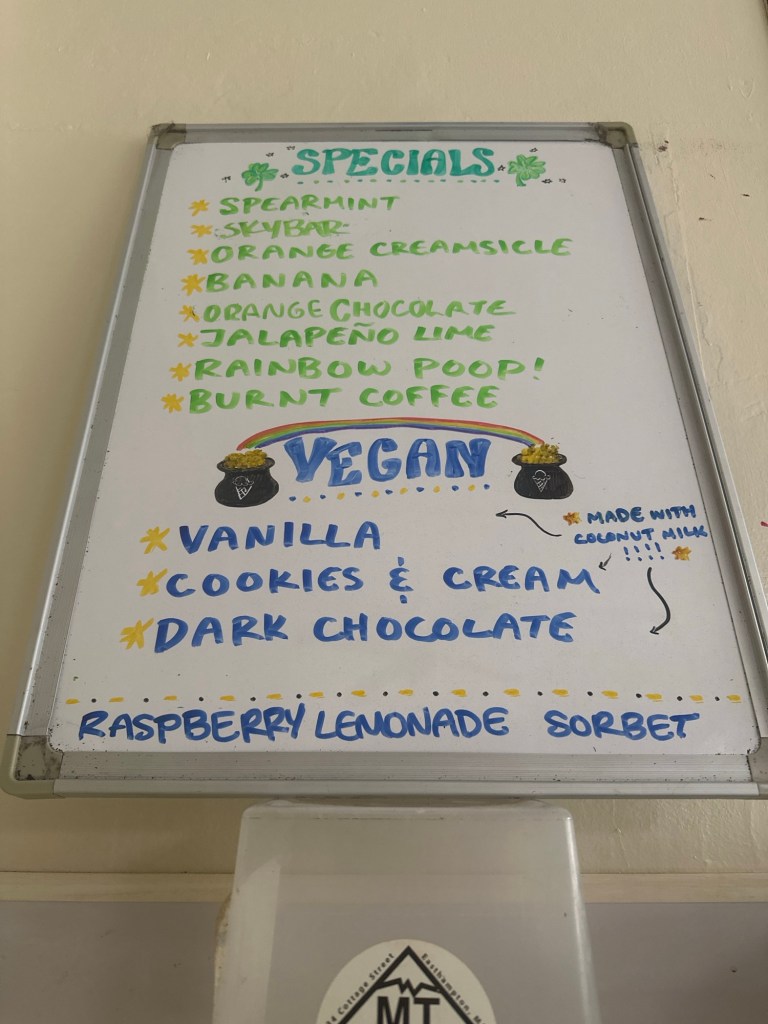 SPECIALS
SPEARMINT
SKYBAR
ORANGE CREAMSICLE
BANANA
ORANGE CHOCOLATE
JALAPEÑO LIME
RAINBOW POOP!
BURNT COFFEE
VEGAN
MADE WITH
COCONUT MILK
!!!!
VANILLA
COOKIES & CREAM
DARK CHOCOLATE
RASPBERRY LEMONADE SORBET
Cottage Street
Easthampton,
MT